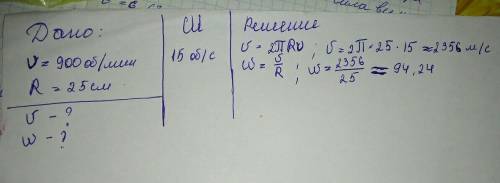 Дано:
ν = 900 об/мин
R = 25 см
v - ?
w - ?
СИ
15 об/с
Решение
v = 2πRν ; v = 2π * 25 * 15 ≈ 2356 м/с
w = v/R ; w = 2356/25 = 94,24